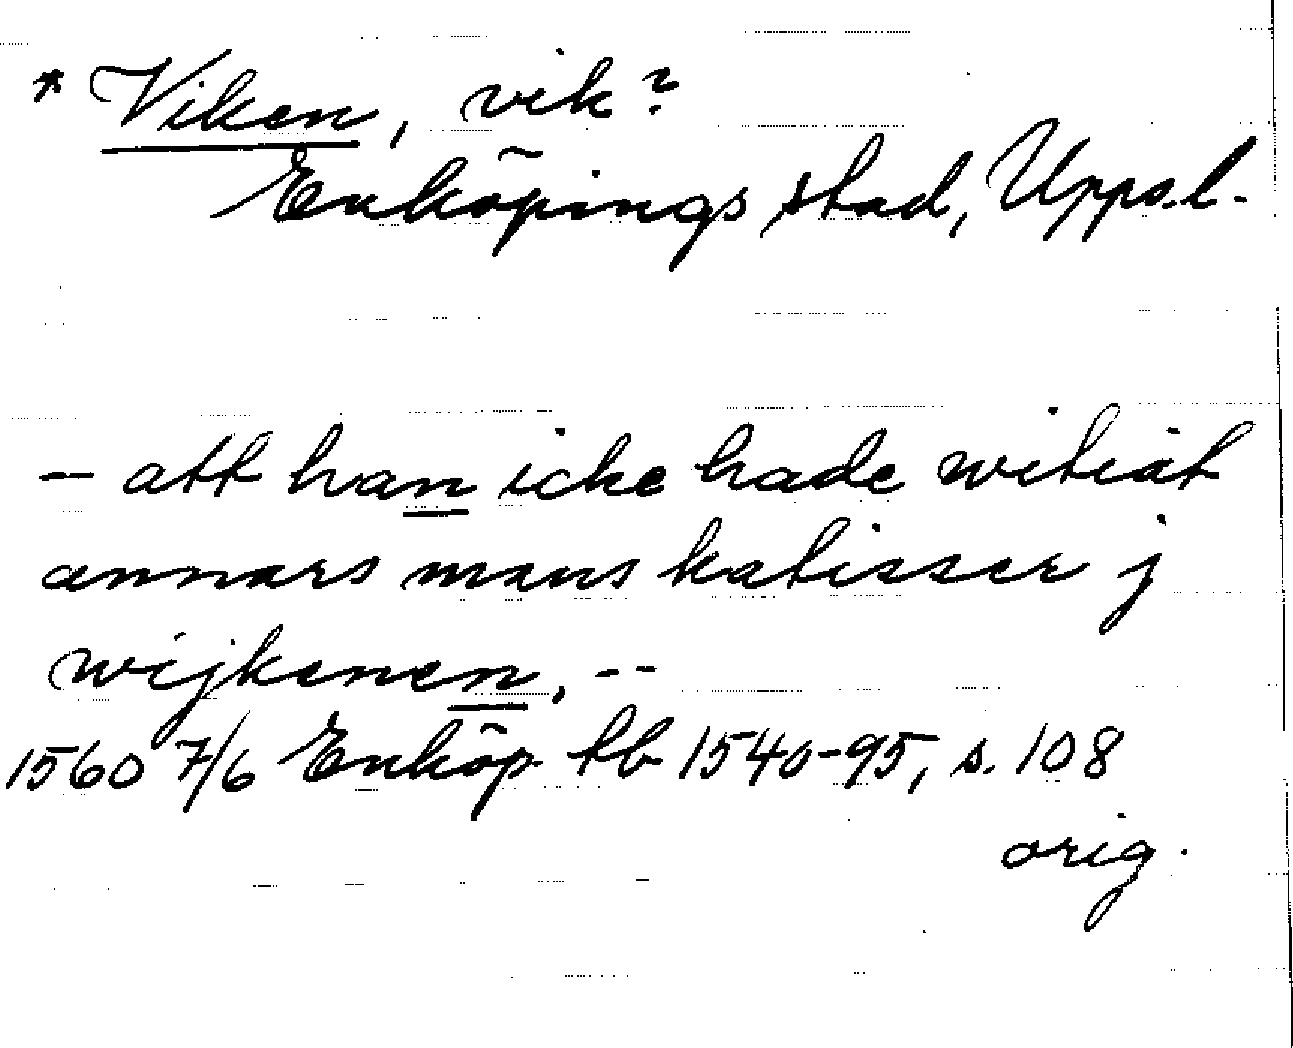 * Viken, vik?
Enköpings stad, Uppl.
– att han icke hade witiat
annars mans katisser j
wijkenen, --
1560 7/6 Enköp tb 1540-95, s. 108
orig.